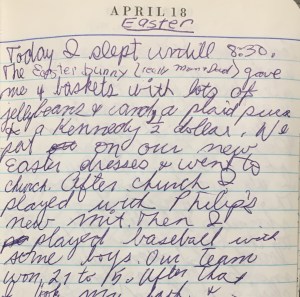 APRIL 18
Easter
Today I slept untill 8:30.
The Easter bunny (really Mom & Dad) gave
me 4 baskets with lots of
jellybeans & candy, a plaid
& a Kennedy ½ dollar. We
put on our new
Easter dresses & went to
church. After church I
played with Philip's
new mit. Then I
played baseball with
some boys. Our team
won, 21 to 15. After that
I took my bath, &